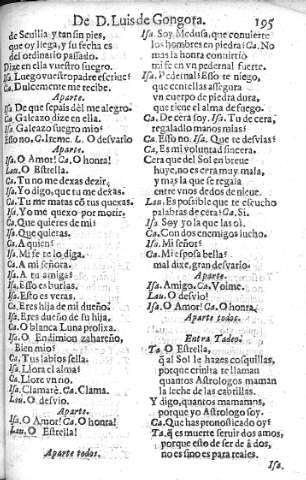 De D. Luis de Gongora. 195
de Seuilla y tan sin pies,
que oy llega, y su fecha es
del ordinario passado.
Dize en ella vuestro suegro.
Isa. Luego vuestro padre escriue?
Ca. Dulcemente me recibe.
Aparte.
Isa. De que sepais dèl me alegro.
Ca. Galeazo dize en ella.
Isa. Galeazo suegro mio?
Esso no. G. Irene. L. O desvario
Aparte.
Isa. O Amor! Ca. O honra!
Lau. O Estrella.
Ca. Tu no me dexas dezir,
Isa. Yo digo, que tu me dexas.
Ca. Tu me matas cõ tus quexas.
Isa. Yo me quexo por morir.
Ca. Que quieres de mi?
Isa. Que quieras.
Ca. A quien?
Isa. Mi fe te lo diga.
Ca. A mi señora.
Isa. A tu amiga?
Isa. Esso es burlas.
Isa. Esto es veras.
Ca. Eres hija de mi dueño.
Isa. Eres dueño de su hija.
Ca. O blanca Luna prolixa.
Isa. O Endimion zahareño,
Bien mio?
Ca. Tus labios sella.
Isa. Llora el alma?
Ca. Llore vn no.
Isa. Clamarè. Ca. Clama.
Lau. O desvio.
Aparte.
Isa. O Amor! Ca. O honra!
Lau. O Estrella!
Aparte todos.
Isa. Soy Medusa, que conuierte
los hombres en piedra? Ca. No
mas la honra conuirtiò
mi fe en vn pedernal fuerte.
Isa. Pedernal? Esso te niego,
que centellas assegura
vn cuerpo de piedra dura,
que tiene el alma de fuego.
Ca. De cera soy. Isa. Tu de cera,
regaladio manos mias?
Ca. Esso no. Isa. Que te desvias?
Ca. Es mi voluntad sincera.
Cera que del Sol en breue
huye, no es cera muy mala,
y mas la que se regala
entre vnos dedos de nieue.
Lau. Es possible que te escucho
palabras de cera? Ca. Si.
Isa Soy yo la que las oì.
Ca. Con dos enemigos lucho.
Isa. Mi señor?
Ca. Mi esposa bella?
mal dixe, gran desvario.
Aparte.
Isa. Amigo. Ca. Voime.
Lau. O desvio!
Isa. O Amor! Ca. O honra.
Aparte todos.
Entra Tadeo.
Ta. O Estrella,
q̃ al Sol le hazes cosquillas,
porque crinita te llaman
quantos Astrologos maman
la leche de las cabrillas.
Y digo, quantos mamamos,
porque yo Astrologo soy.
Ca. Que has pronosticado oy?
Ta. q̃ es muerte seruir dos amos,
porque esto de ser de â dos,
no es sino es para reales.
Isa.